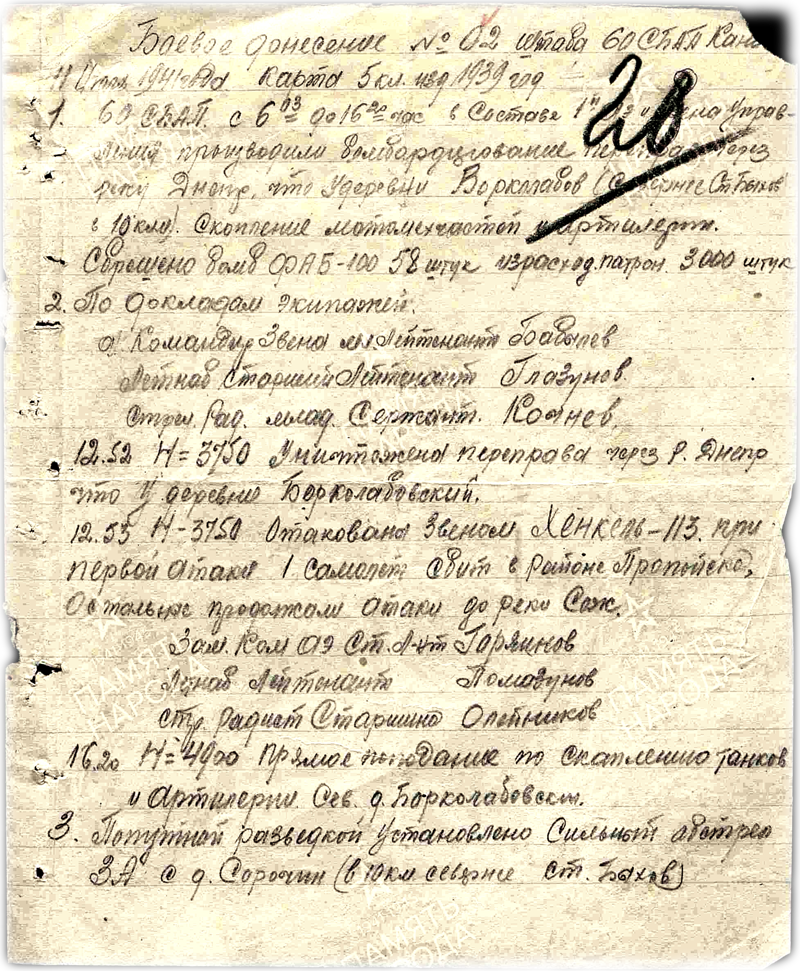 Боевое донесение № 02 штаба 60 СБАП
11 Июля 1941 года карта 5 кл. изд 1939 год
28
1. 60 СБАП. с 6 03 до 16 20 час в Составе 1 звена Управ-
ления производили бомбардирование переправ через
реку Днепр, что Удеревни Борколабов (Севернее Ст. Быхов
в 10 клм). Скопление мотомехчастей и артилерии.
Сброшено бомб ФАБ-100 58 штук израсход. патрон 3000 штук
2. По докладам экипажей.
а) Командир Звена мл. Лейтенант Бабылев
Летнаб Старший Лейтенант Глазунов.
Стрел. Рад. млад. Сержант.
12.52 Н = 3750 Уничтожена переправа через р. Днепр
что У деревне Борколабовский.
12.53 Н-3750 Отакована Звеном Хенкель-113. при
первой атаке 1. самолет сбит в районе Пропойска,
Остальные продожали атаки до реки Сож.
Зам. Ком АЭ Ст. Л-нт Горяинов
Летнаб Лейтенант Помазунов
стр. радист Старшина Олейников
16.20 Н = 4900 прямое попадание по скаплению танков
и Артилерии Сев. д. Борколабовским.
3. Попутной разведкой Установлено Сильный абстрел
ЗА с д. Сорочин (в 10 км севернее ст. Быхов)
ПАМЯТЬ
НАРОДА
ПАМЯТЬ
НАРОДА
ПАМЯТЬ
НАРОДА